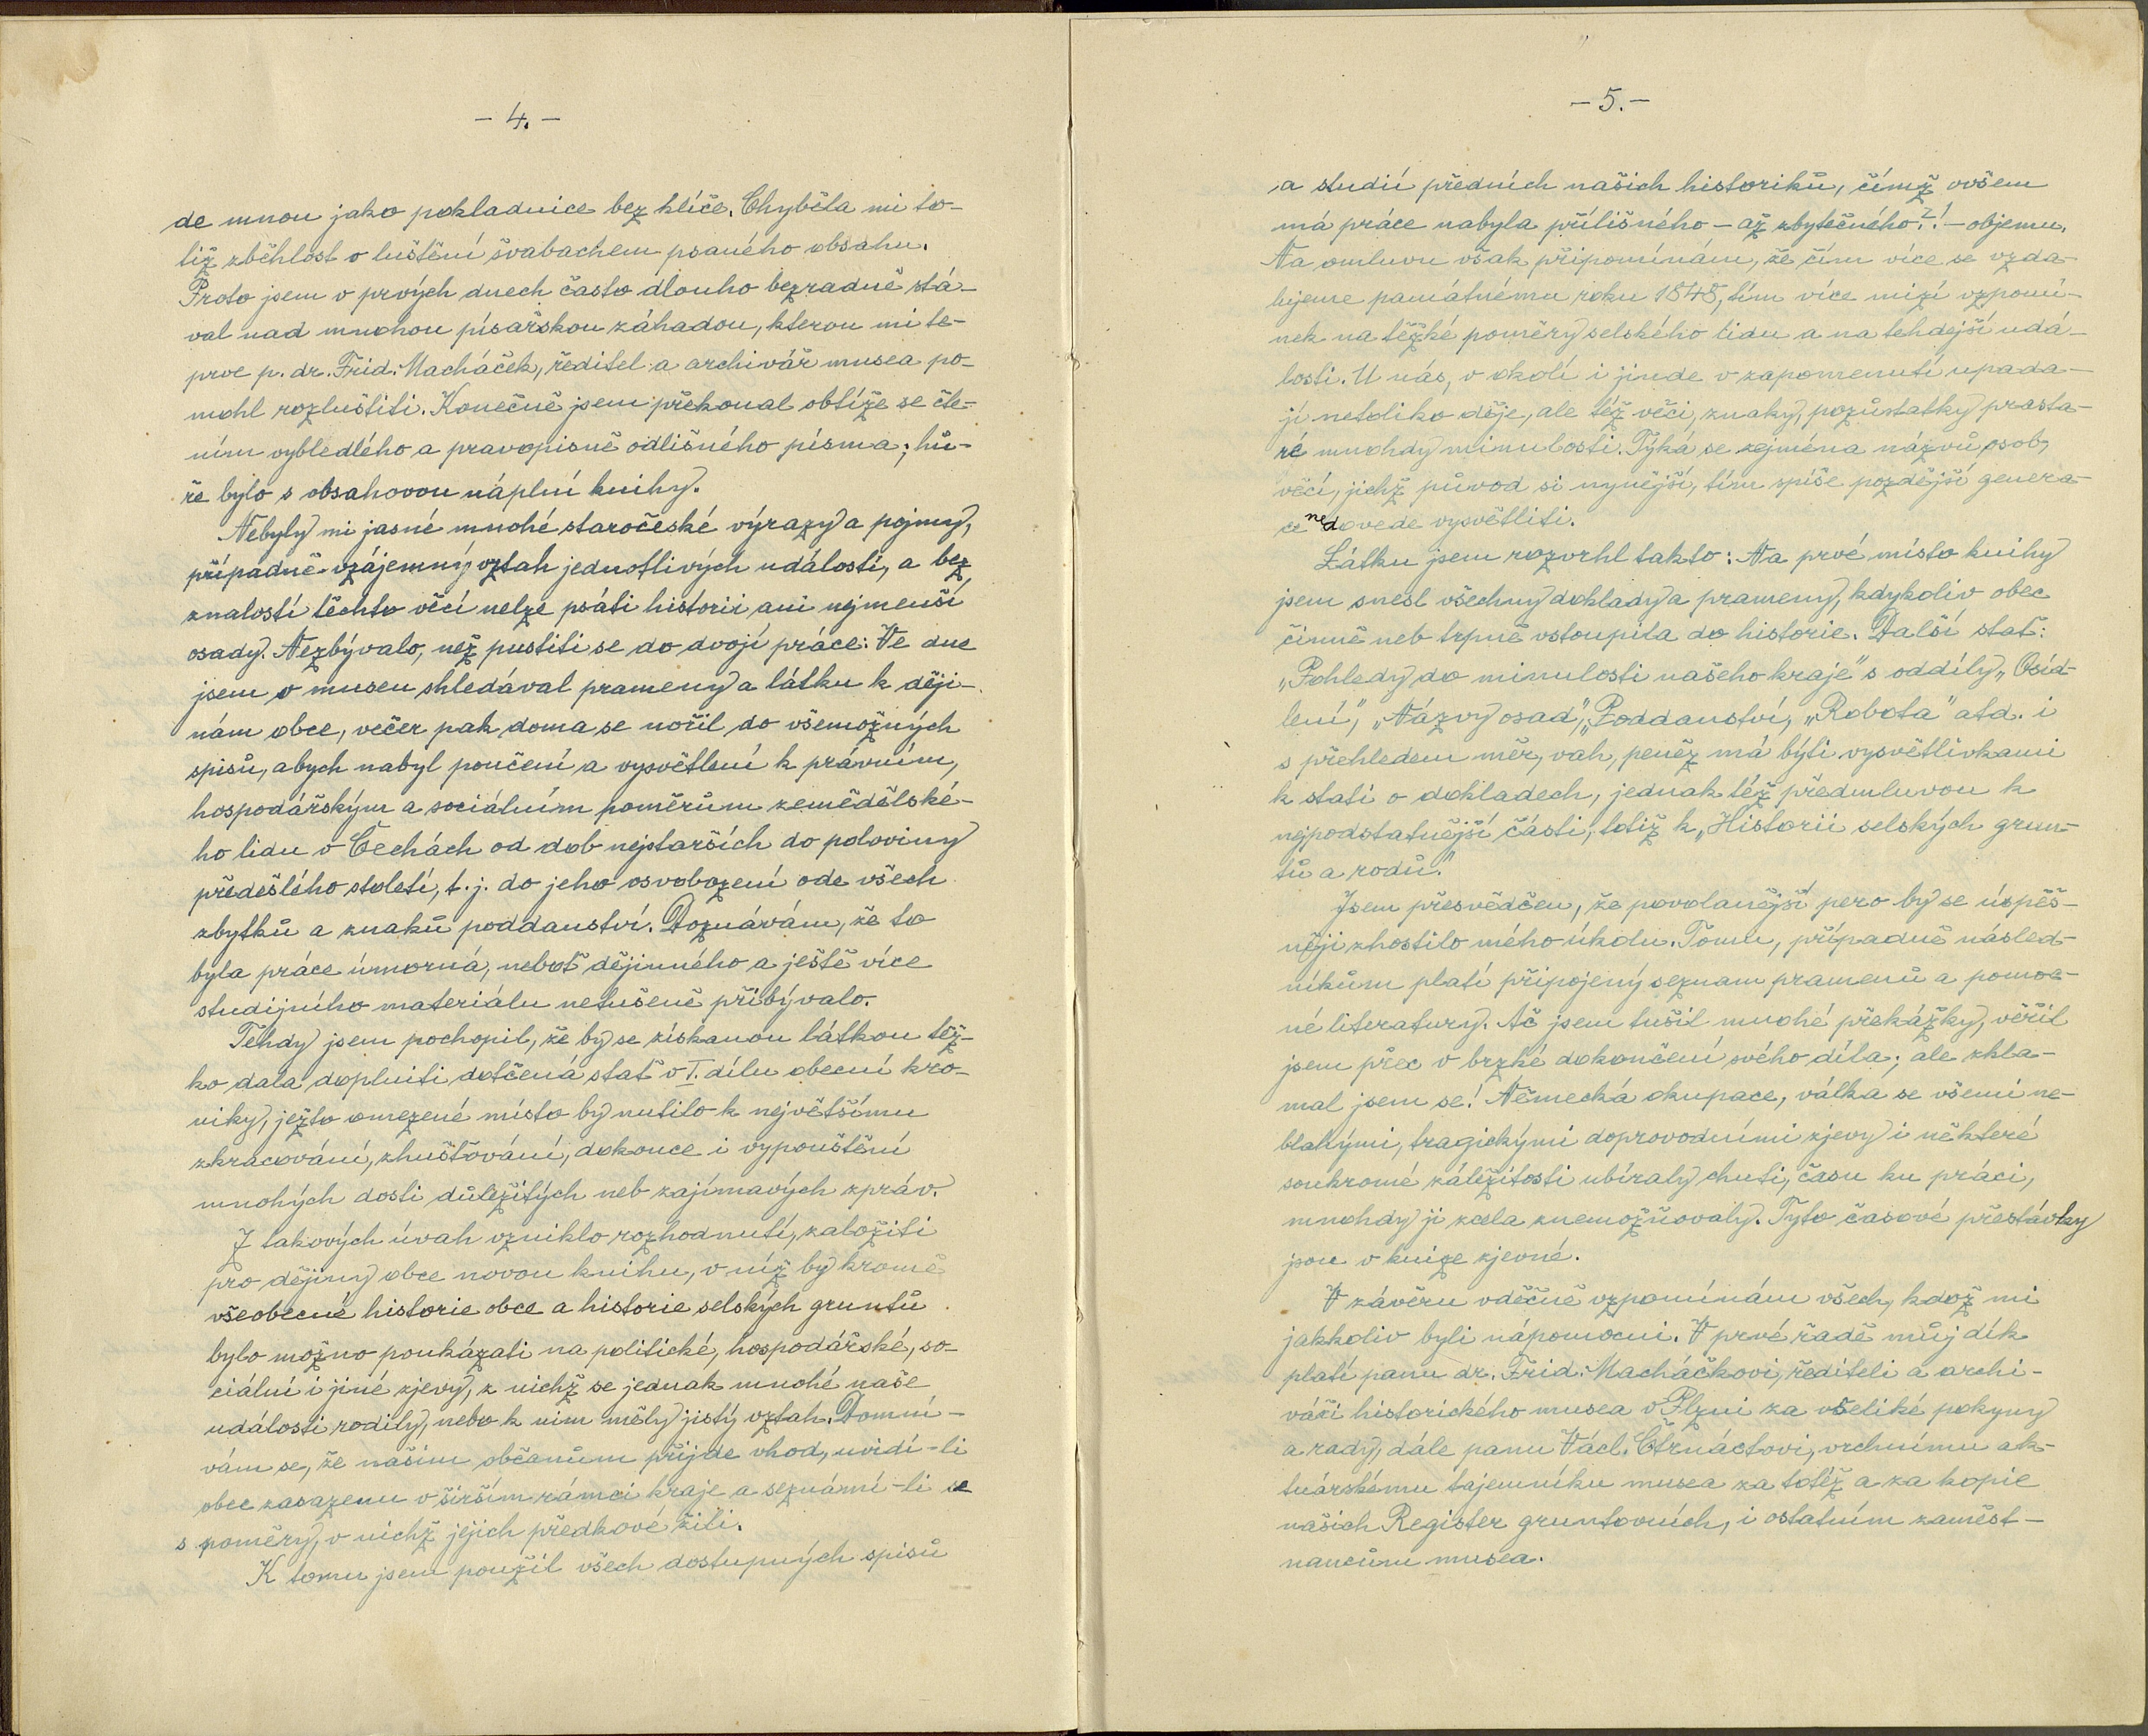 - 4. -
de mnou jako pokladnice bez klíče. Chyběla mi to-
tiž zběhlost v luštění švabachem psaného obsahu.
Proto jsem v prvých dnech často dlouho bezradně stá-
val nad mnohou písařskou záhadou, kterou mi te-
prve p. dr. Frid. Macháček, ředitel a archivář musea po-
mohl rozluštiti. Konečně jsem překonal obtíže se čte-
ním vybledlého a pravopisně odlišného písma; hů-
ře bylo s obsahovou náplní knihy.
Nebyly mi jasné mnohé staročeské výrazy a pojmy,
případně vzájemný vztah jednotlivých událostí, a bez
znalostí těchto věcí nelze psáti historii ani nejmenší
osady. Nezbývalo, než pustiti se do dvojí práce: Ve dne
jsem v museu shledával prameny a látku k ději-
nám obce, večer pak doma se nořil do všemožných
spisů, abych nabyl poučení a vysvětlení k právním,
hospodářským a sociálním poměrům zemědělské-
ho lidu v Čechách od dob nejstarších do poloviny
předešlého století, t. j. do jeho osvobození ode všech
zbytků a znaků poddanství. Doznávám, že to
byla práce úmorná, neboť dějinného a ještě více
studijního materiálu netušeně přibývalo.
Tehdy jsem pochopil, že by se získanou látkou těž-
ko dala doplniti dotčená stať v I. dílu obecní kro-
niky, ježto omezené místo by nutilo k největšímu
zkracování, zhušťování, dokonce i vypouštění
mnohých dosti důležitých neb zajímavých zpráv.
Z takových úvah vzniklo rozhodnutí, založiti
pro dějiny obce novou knihu, v níž by kromě
všeobecné historie obce a historie selských gruntů
bylo možno poukázati na politické, hospodářské, so-
ciální i jiné zjevy, z nichž se jednak mnohé naše
události rodily, nebo k nim měly jistý vztah. Domní-
vám se, že našim občanům přijde vhod, uvidí-li
obec zasazenu v širším rámci kraje a seznámí-li se
s poměry, v nichž jejich předkové žili.
K tomu jsem použil všech dostupných spisů
- 5. -
a studií předních našich historiků, čímž ovšem
má práce nabyla přílišného - až zbytečného?! - objemu.
Na omluvu však připomínám, že čím více se vzda-
lujeme památnému roku 1848, tím více mizí vzpomí-
nek na těžké poměry selského lidu a na tehdejší udá-
losti. U nás, v okolí i jinde v zapomenutí upada-
jí netoliko děje, ale též věci, znaky, pozůstatky prasta-
ré mnohdy minulosti. Týká se zejména názvů osob,
věcí, jichž původ si nynější, tím spíše pozdější genera-
ce nedovede vysvětliti.
Látku jsem rozvrhl takto: Na prvé místo knihy
jsem snesl všechny doklady a prameny, kdykoliv obec
činně neb trpně vstoupila do historie. Další stať:
„Pohledy do minulosti našeho kraje" s oddíly „Osíd-
lení", „Názvy osad", „Poddanství, „Robota" atd. i
s přehledem měr, vah, peněz má býti vysvětlivkami
k stati o dokladech, jednak též předmluvou k
nejpodstatnější části, totiž k „Historii selských grun-
tů a rodů."
Jsem přesvědčen, že povolanější pero by se úspěš-
něji zhostilo mého úkolu. Tomu, případně násled-
níkům platí připojený seznam pramenů a pomoc-
né literatury. Ač jsem tušil mnohé překážky, věřil
jsem přec v brzké dokončení svého díla; ale zkla-
mal jsem se! Německá okupace, válka se všemi ne-
blahými, tragickými doprovodními zjevy i některé
soukromé záležitosti ubíraly chuti, času ku práci,
mnohdy ji zcela znemožňovaly. Tyto časové přestávky
jsou v knize zjevné.
V závěru vděčně vzpomínám všech, kdož mi
jakkoliv byli nápomocni. V prvé řadě můj dík
platí panu dr. Frid. Macháčkovi, řediteli a archi-
váři historického musea v Plzni za všeliké pokyny
a rady, dále panu Václ. Čtrnáctovi, vrchnímu ak-
tuárskému tajemníku musea za totéž a za kopie
našich Register gruntovních, i ostatním zaměst-
nancům musea.